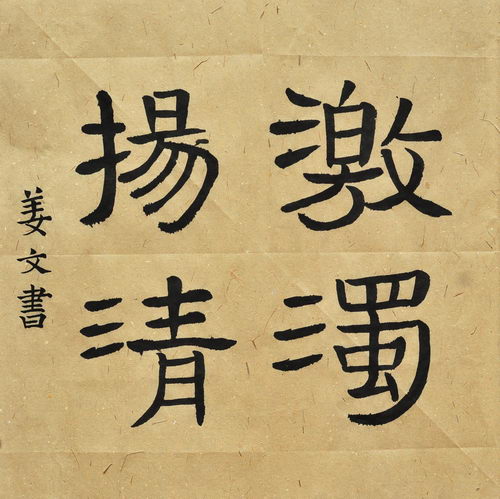 激濁
揚清
姜文書